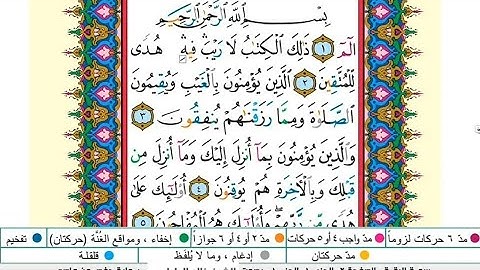 بِسْمِ اللَّهِ الرَّحْمَٰنِ الرَّحِيمِ
الٓمٓ ١ ذَٰلِكَ الْكِتَٰبُ لَا رَيْبَ فِيهِ هُدًى
لِّلْمُتَّقِينَ ٢ الَّذِينَ يُؤْمِنُونَ بِالْغَيْبِ وَيُقِيمُونَ
الصَّلَوٰةَ وَمِمَّا رَزَقْنَٰهُمْ يُنفِقُونَ ٣
وَالَّذِينَ يُؤْمِنُونَ بِمَآ أُنزِلَ إِلَيْكَ وَمَآ أُنزِلَ مِن
قَبْلِكَ وَبِالْءَاخِرَةِ هُمْ يُوقِنُونَ ٤ أُو۟لَٰٓئِكَ عَلَىٰ
هُدًى مِّن رَّبِّهِمْ وَأُو۟لَٰٓئِكَ هُمُ الْمُفْلِحُونَ ٥
مدّ ٦ حركات لزوماً مدّ٢ أو ٤ أو ٦ جوازاً إخفاء، ومواقع الغُنَّة (حركتان) تفخيم
مدّ واجب ٤ أو ٥ حركات مدّ حركتان إدغام، وما لا يُلفَظ قلقلة